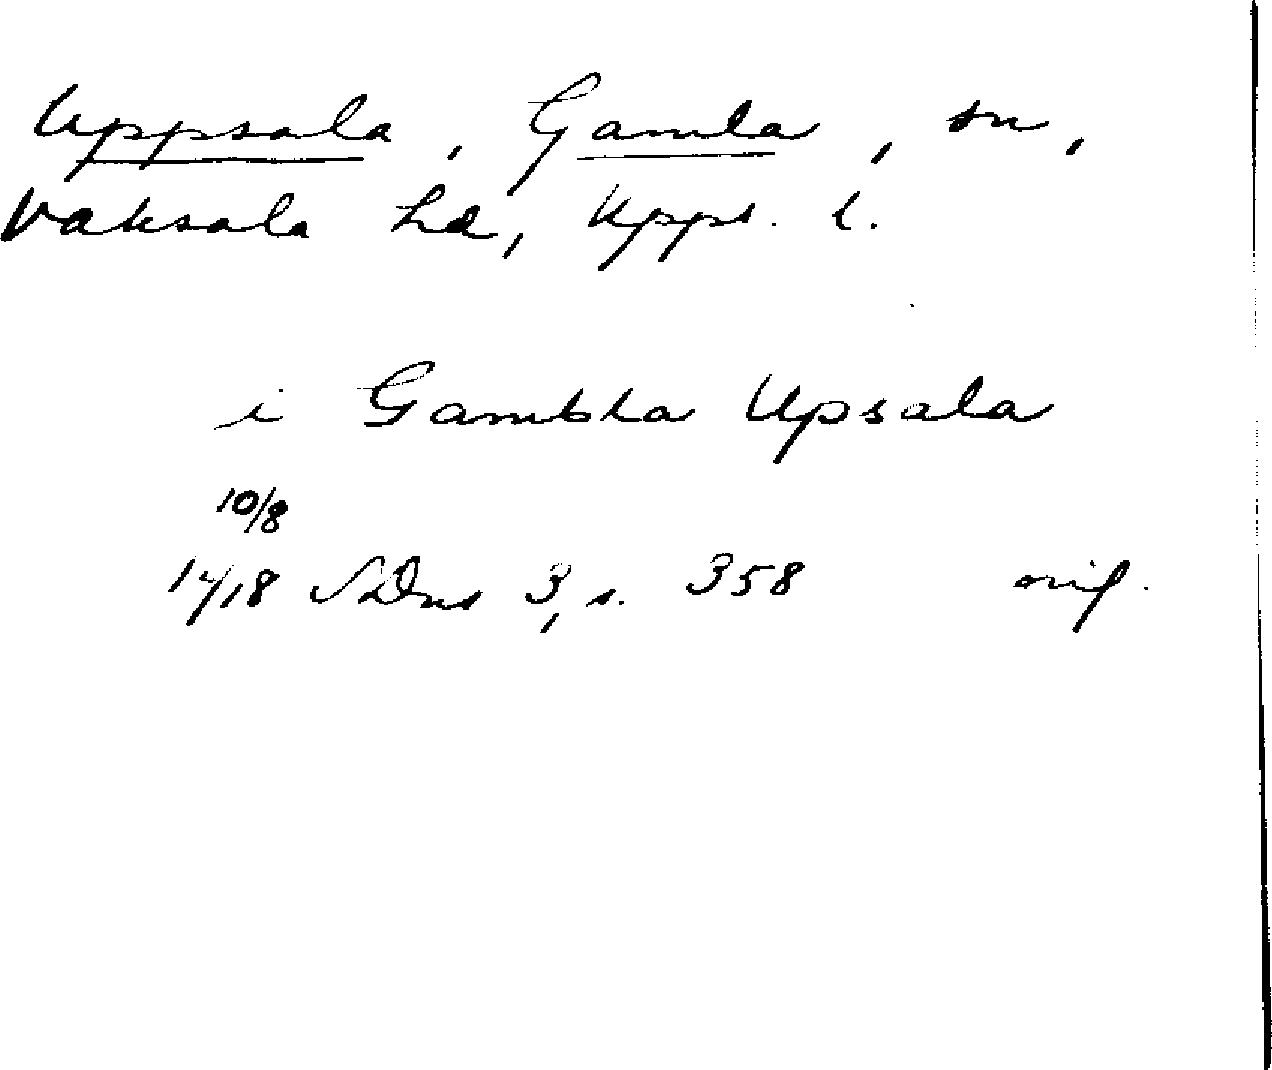 Uppsala, Gamla, sn,
Vaksala hd, Upps. l.
i Gambla Upsala
10/8
1418 SDns 3, s. 358 orig.